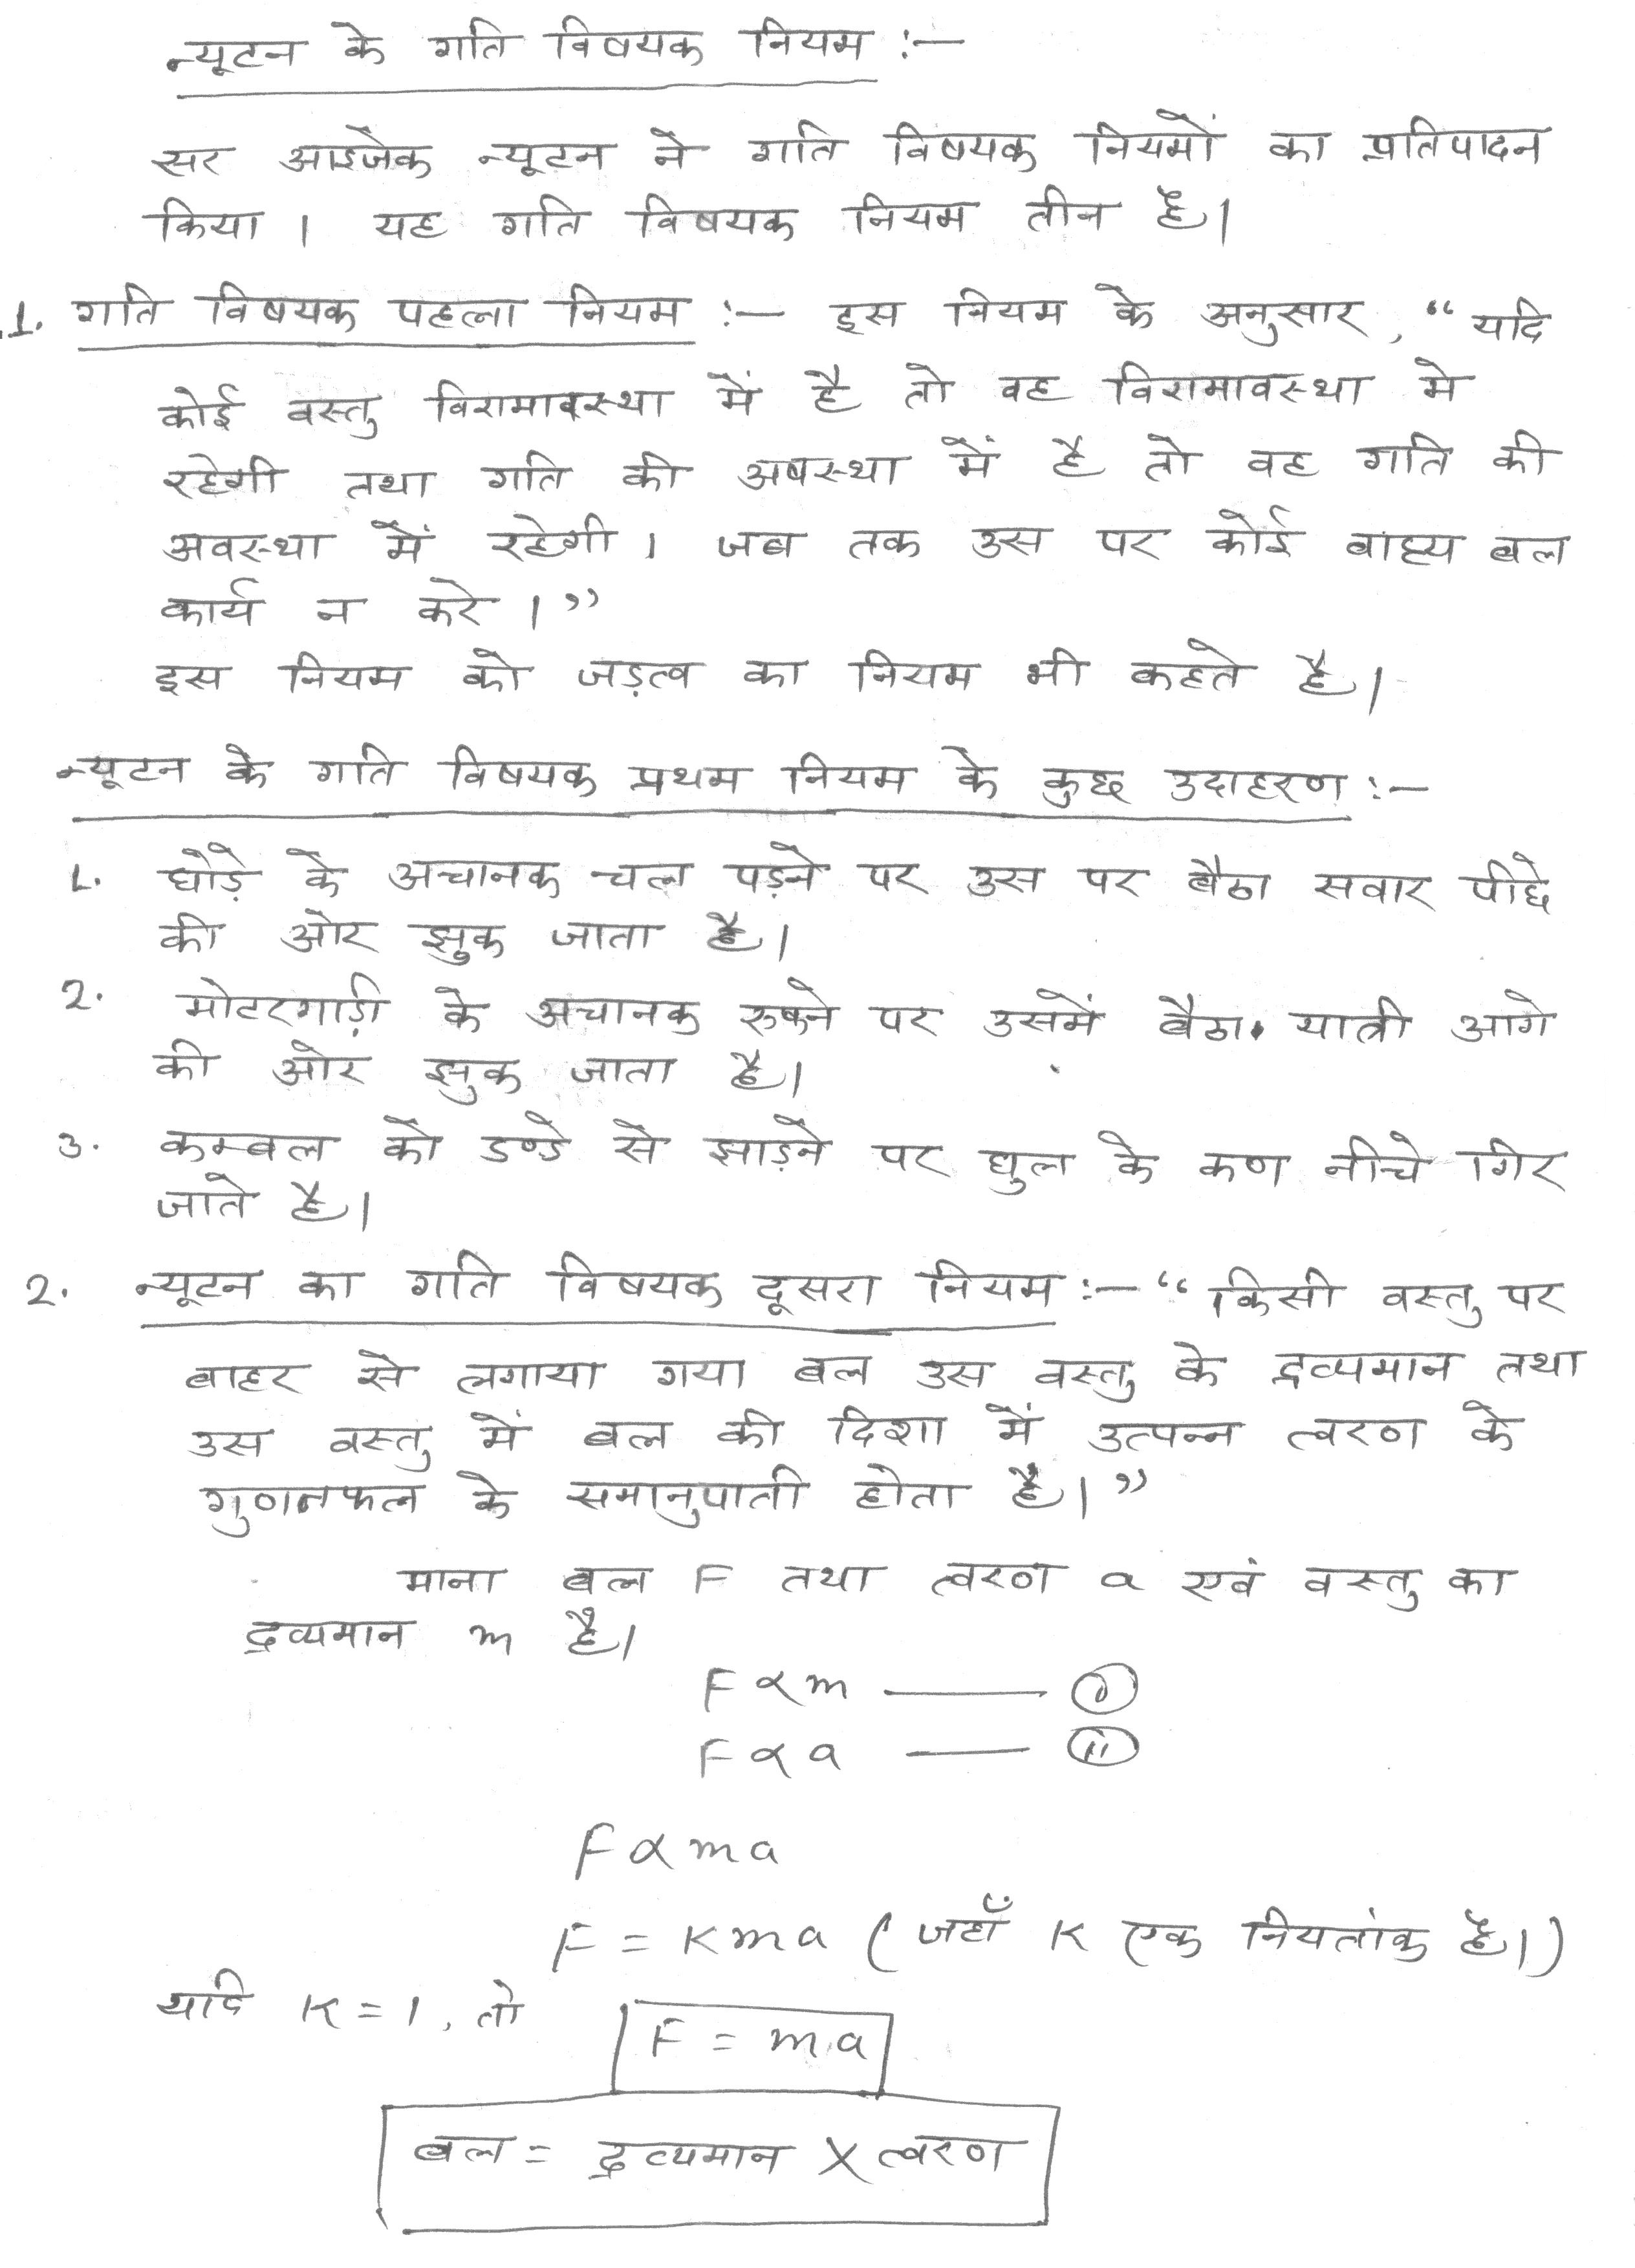 न्यूटन के गति विषयक नियम :-
सर आइजेक न्यूटन ने गति विषयक नियमों का प्रतिपादन
किया । यह गति विषयक नियम तीन है।
1. गति विषयक पहला नियम :- इस नियम के अनुसार, “यदि
कोई वस्तु विरामावस्था में है तो वह विरामावस्था मे
रहेगी तथा गति की अवस्था में है तो वह गति की
अवस्था में रहेगी। जब तक उस पर कोई बाह्य बल
कार्य न करे ।”
इस नियम को जड़त्व का नियम भी कहते है।
न्यूटन के गति विषयक प्रथम नियम के कुछ उदाहरण :-
1. घोड़े के अचानक चल पड़ने पर उस पर बैठा सवार पीछे
की ओर झुक जाता है।
2. मोटरगाड़ी के अचानक रुकने पर उसमें बैठा यात्री आगे
की ओर झुक जाता है।
3. कम्बल को डण्डे से झाड़ने पर धुल के कण नीचे गिर
जाते है।
2. न्यूटन का गति विषयक दूसरा नियम :- “किसी वस्तु पर
बाहर से लगाया गया बल उस वस्तु के द्रव्यमान तथा
उस वस्तु में बल की दिशा में उत्पन्न त्वरण के
गुणनफल के समानुपाती होता है।”
माना बल F तथा त्वरण a एवं वस्तु का
द्रव्यमान m है।
F ∝ m —— (i)
F ∝ a —— (ii)
F ∝ ma
F = Kma (जहाँ K एक नियतांक है।)
यदि K = 1, तो
F = ma
बल = द्रव्यमान X त्वरण